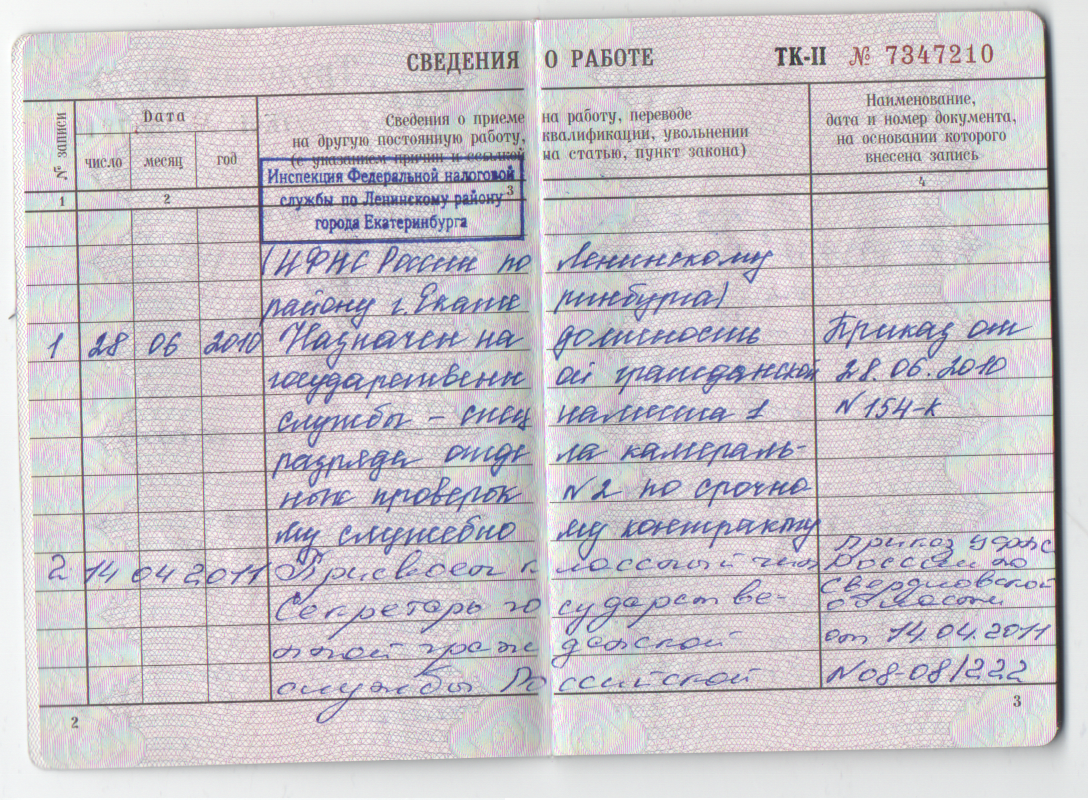 СВЕДЕНИЯ О РАБОТЕ ТК-II № 7347210
№ записи
Дата
число месяц год
Сведения о приеме на работу, переводе
на другую постоянную работу, квалификации, увольнении
(с указанием причин и ссылкой на статью, пункт закона)
Наименование,
дата и номер документа,
на основании которого
внесена запись
1 2 3 4
Инспекция Федеральной налоговой
службы по Ленинскому району
города Екатеринбурга
(ИФНС России по Ленинскому
району г. Екатеринбурга)
1 28 06 2010 Назначен на должность Приказ от
государственной гражданской 28.06.2010
службы – специалиста 1 N 154-к
разряда отдела камераль-
ных проверок N2 по срочно
му служебному контракту
2 14 04 2011 Присвоен классный чин Приказ УФНС
России по
Секретарь государстве- Свердловской
области
нной гражданской от 14.04.2011
службы Российской N08-08/222
2 3